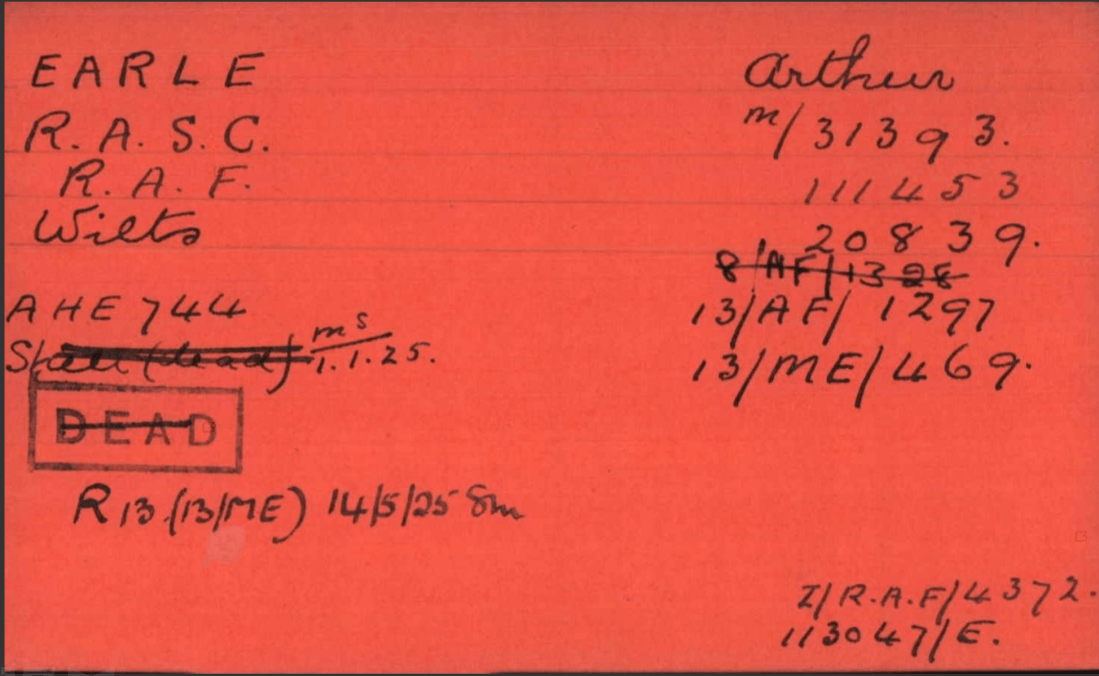 EARLE Arthur
R.A.S.C. M/31393.
R.A.F. 111453
Wilts 20839.
8/AF/1328
AHE 744 13/AF/1297
(dead) ms 1.1.25. 13/ME/469.
DEAD
R13 (13/ME) 14/5/25
I/R.A.F/4372.
113047/E.